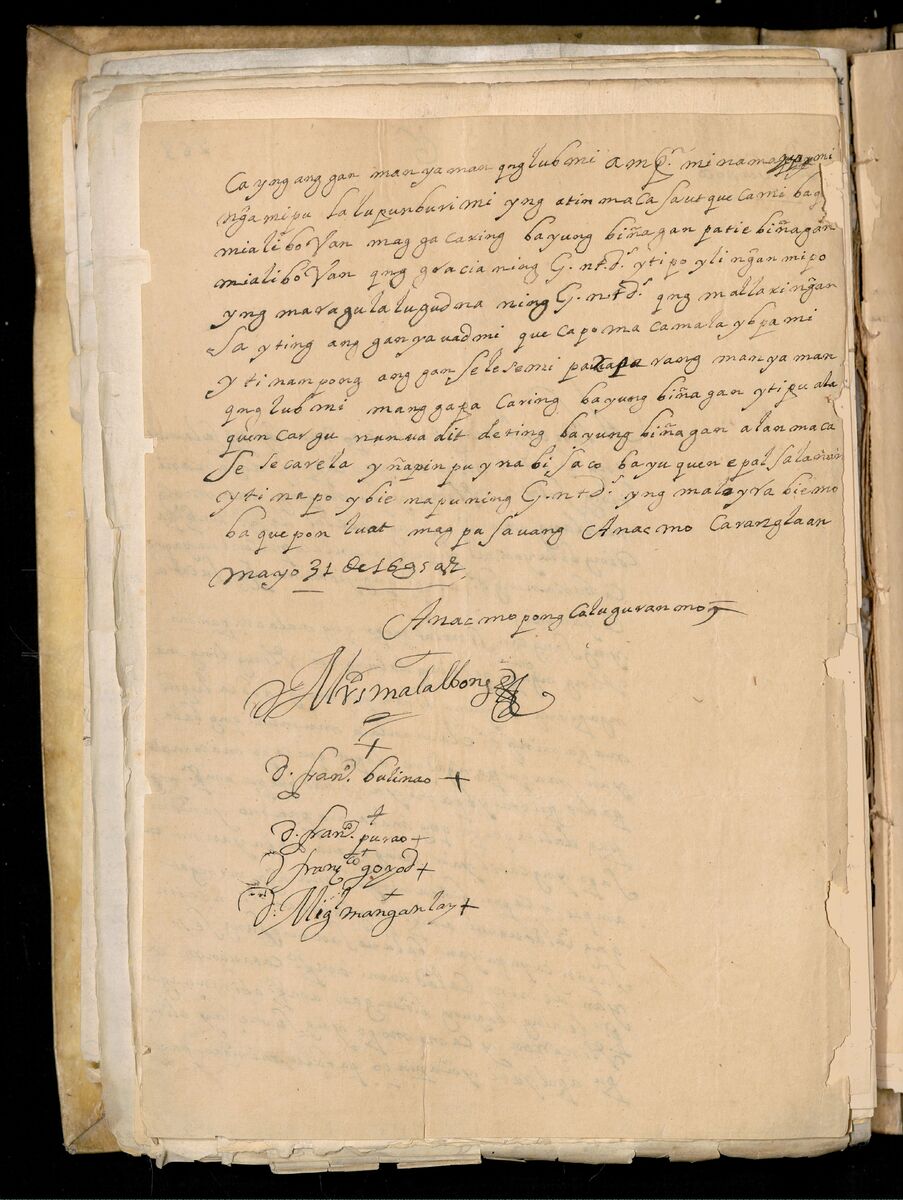 ca yng ang gan man ya man qng lub mi amp.ⁿ mi nama mi
ñga mi pu la lu pun buri mi yng atin maca saut que cami bag
mialibo Van mag ga caring bayung biñagan patie biñagan
mialibo Van qng gracia ning G. ntd.ˢ yti po yli nĝan mi po
yng maragulalugud na ning G. ntd.ˢ qng mallarinĝan
sa yting ang gan ya uad mi que capo ma camala ybpa mi
yti nan pong ang gan selesemi rang man ya man
qng lub mi mang gapa caring bayung biñagan yti pu ala
quen cargu nun ua dit de ting bayung biñagan alan maca
se se carela yñapin pu y na bi sa co bayu quen epal
yti na po ybie na pu ning G. ntd.ˢ yng malayra bie mo
ba que pon luat mag pa sauang Anac mo Caranglaan
mayo 31 de 1695 as
Anac mo pong Caluguran mo
D Mrˢ matalbong
d. franᵒ. bulinao +
d. franᵒ. purao +
d franᶜᵒ goyod +
d. Migˡ manĝanlay +